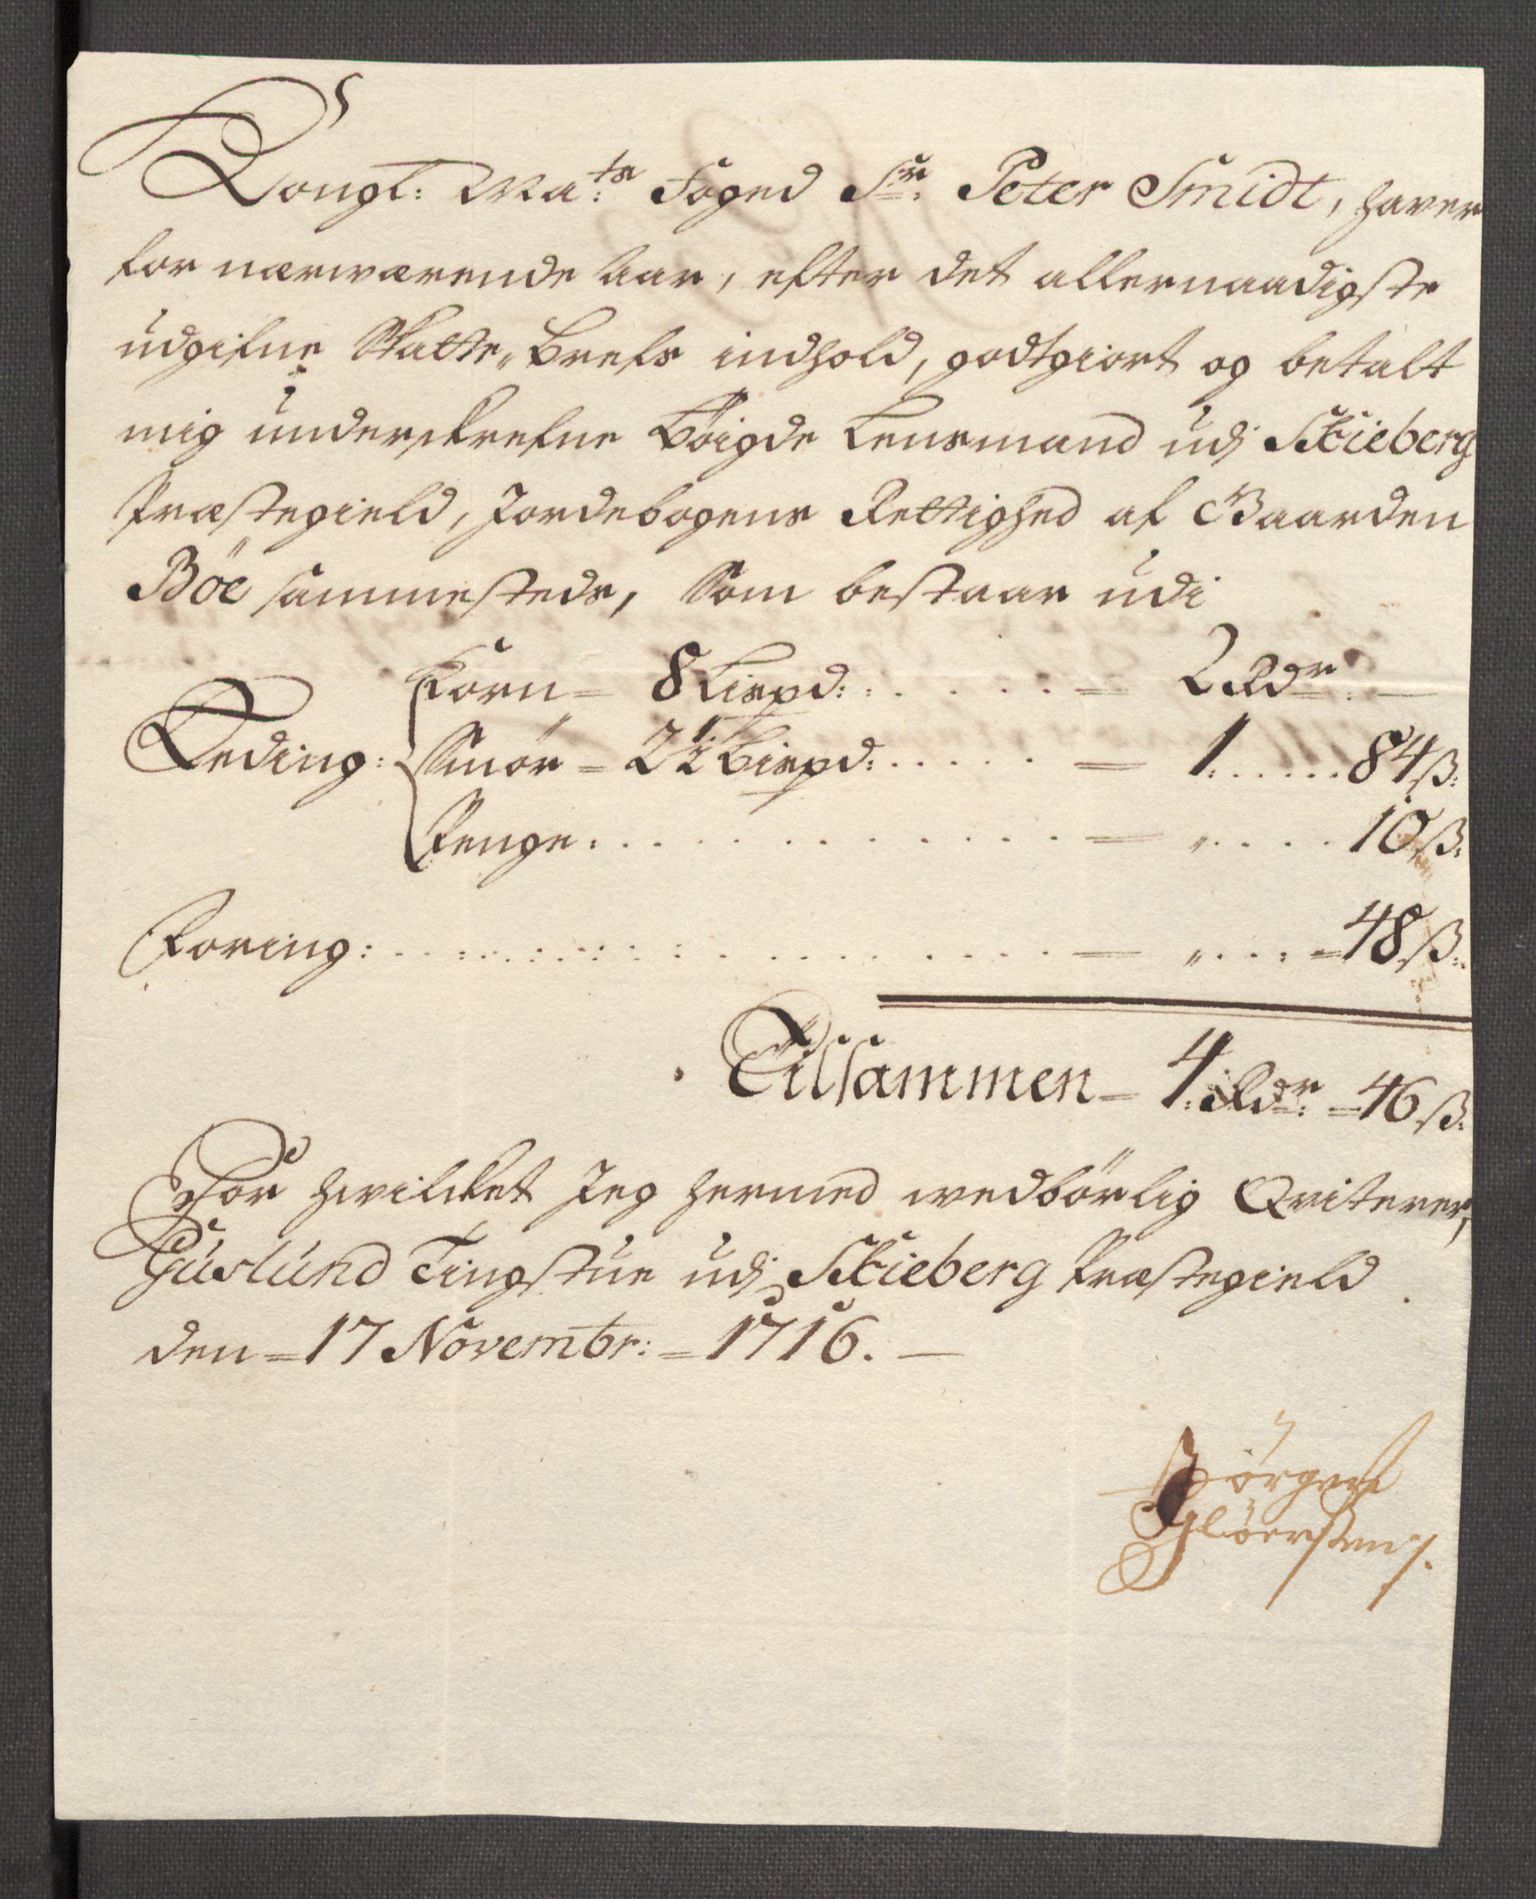 Kongl: Ma:ts Foged Sr: Peter Smidt, haver
for nærwærende Aar, efter det allernaadigste
udgifne Skatte-brefs indhold, godtgiort og betalt
mig underskrefne Böigde Lensmand udj Skieberg
Præstegield, Jordebogens Rettighed af Gaarden
Böe sammesteds, Som bestaar udi
Korn = 8 Lispd: . . . . . = 2 Rdr: —
Leding: Smör = 2½ Bispd: . . . . . = 1. . . . . . 84 ß:
Penge . . . . . . . . . . . . = „ . . . . 10 ß:
Foring: . . . . . . . . . . . . = „ . . . = 48 ß:
Tilsammen = 4: Rdr: = 46 ß:
For hvilcket Jeg hermed wedbörlig Qviterer,
Guslund Tingstue udj Skieberg Præstegield
den = 17 Novembr: = 1716. —
Jörgen
Glöersen